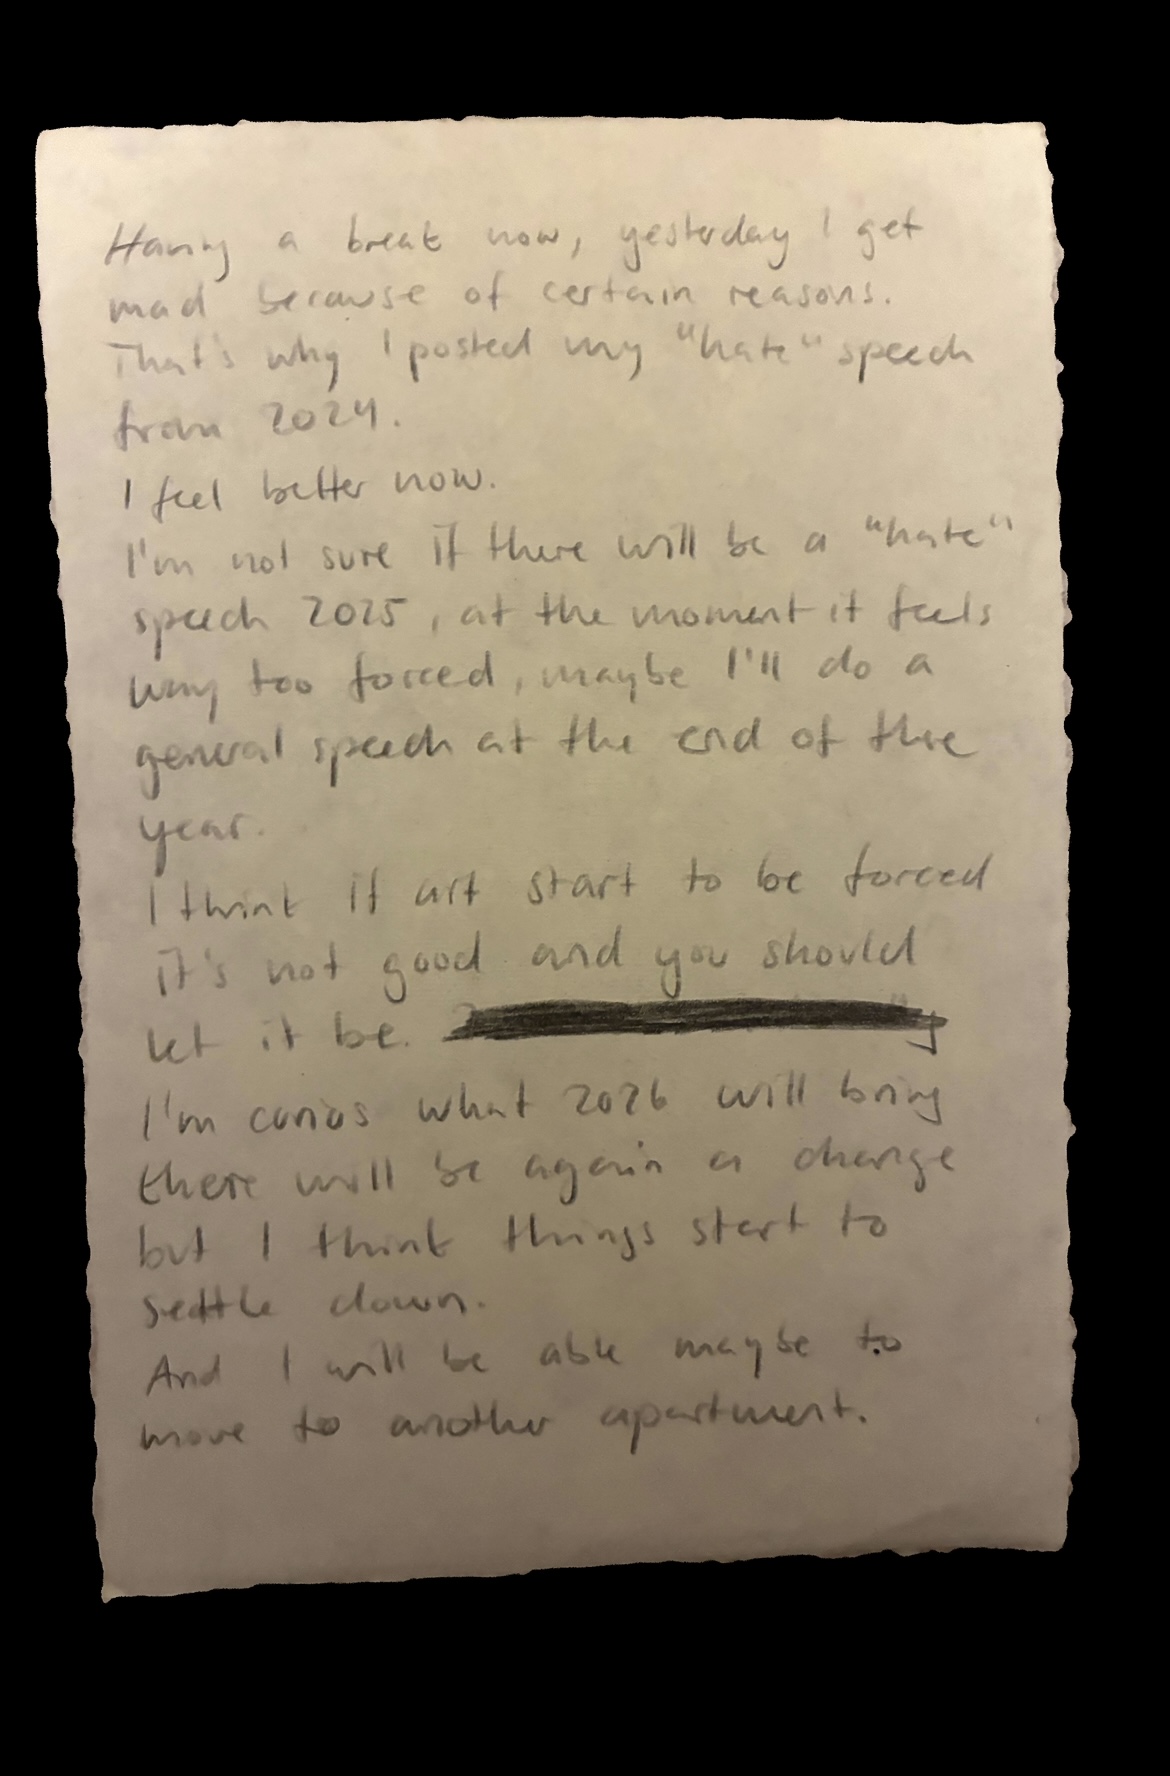 Having a break now, yesterday I get
mad because of certain reasons.
That's why I posted my "hate" speech
from 2024.
I feel better now.
I'm not sure if there will be a "hate"
speech 2025, at the moment it feels
way too forced, maybe I'll do a
general speech at the end of the
year.
I think if art start to be forced
it's not good and you should
let it be.
I'm corios what 2026 will bring
there will be again a change
but I think things start to
settle down.
And I will be able maybe to
move to another apartment.